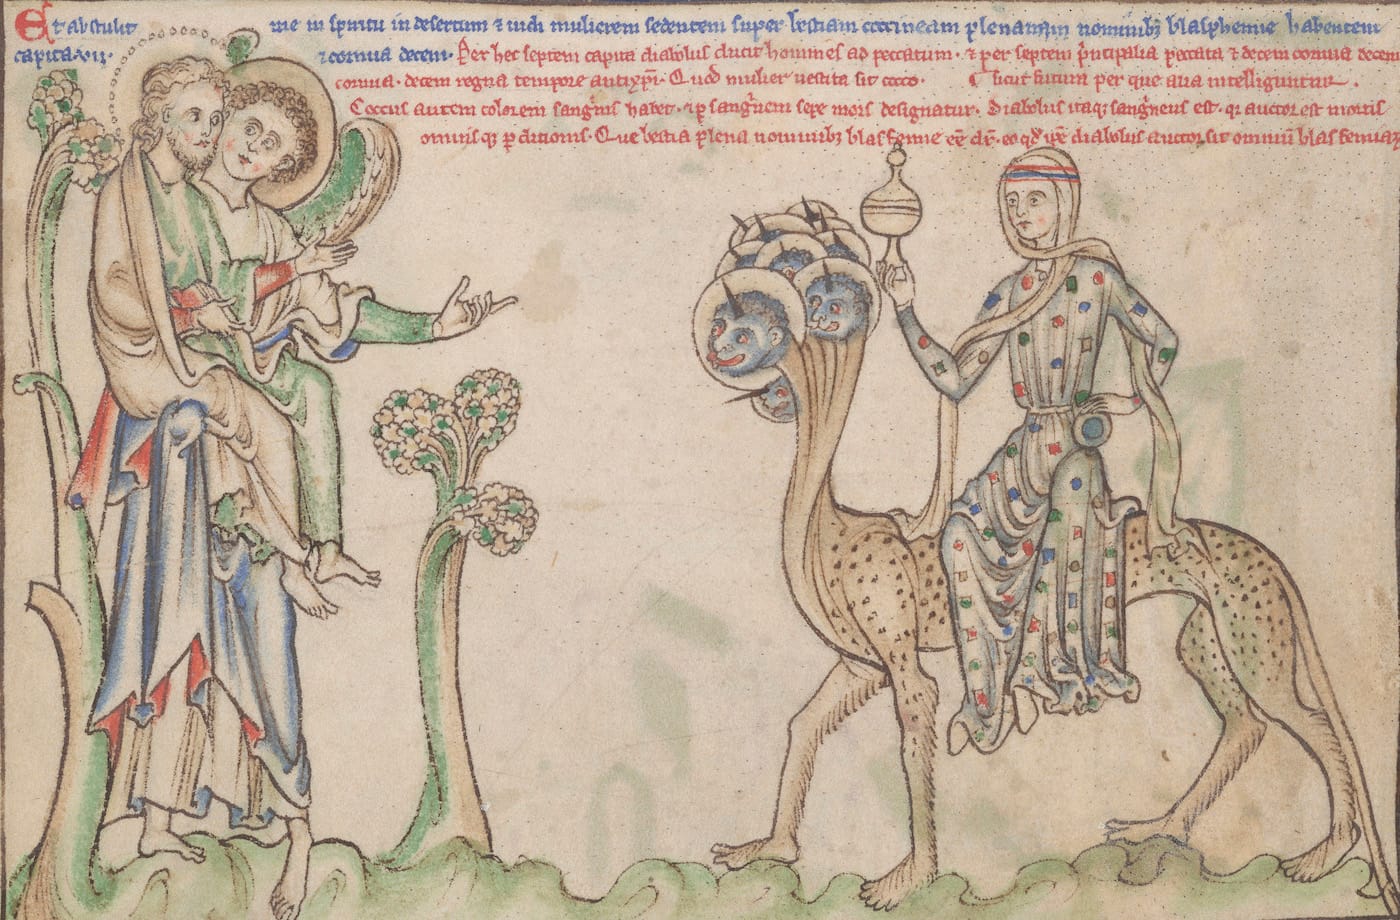 Et abstulit me in spiritu in desertum ⁊ uidi mulierem sedentem super bestiam coccineam plenam nominibꝫ blasphemie habentem
capita·vii· ⁊ cornua decem· Per hec septem capita diabolus ducit homines ad peccatum· ⁊ per septem p̃ncipalia peccata ⁊ decem cornua decem
cornua· decem regna tempore antixp̃i· Quod mulier uestita sit cocco· sicut sutura per que alia intelliguntur·
Coccus autem colorem sanguinis habet· ⁊ p̱ sanguinem sepe mors designatur· Diabolus itaqꝫ sanguineus est· qr auctor est mortis
omnis qꝫ p̱ditionis· Que bestia plena nominibꝫ blasfemie eẽ dr̃· eo qđ ip̃e diabolus auctor sit omniũ blasfemiaꝝ